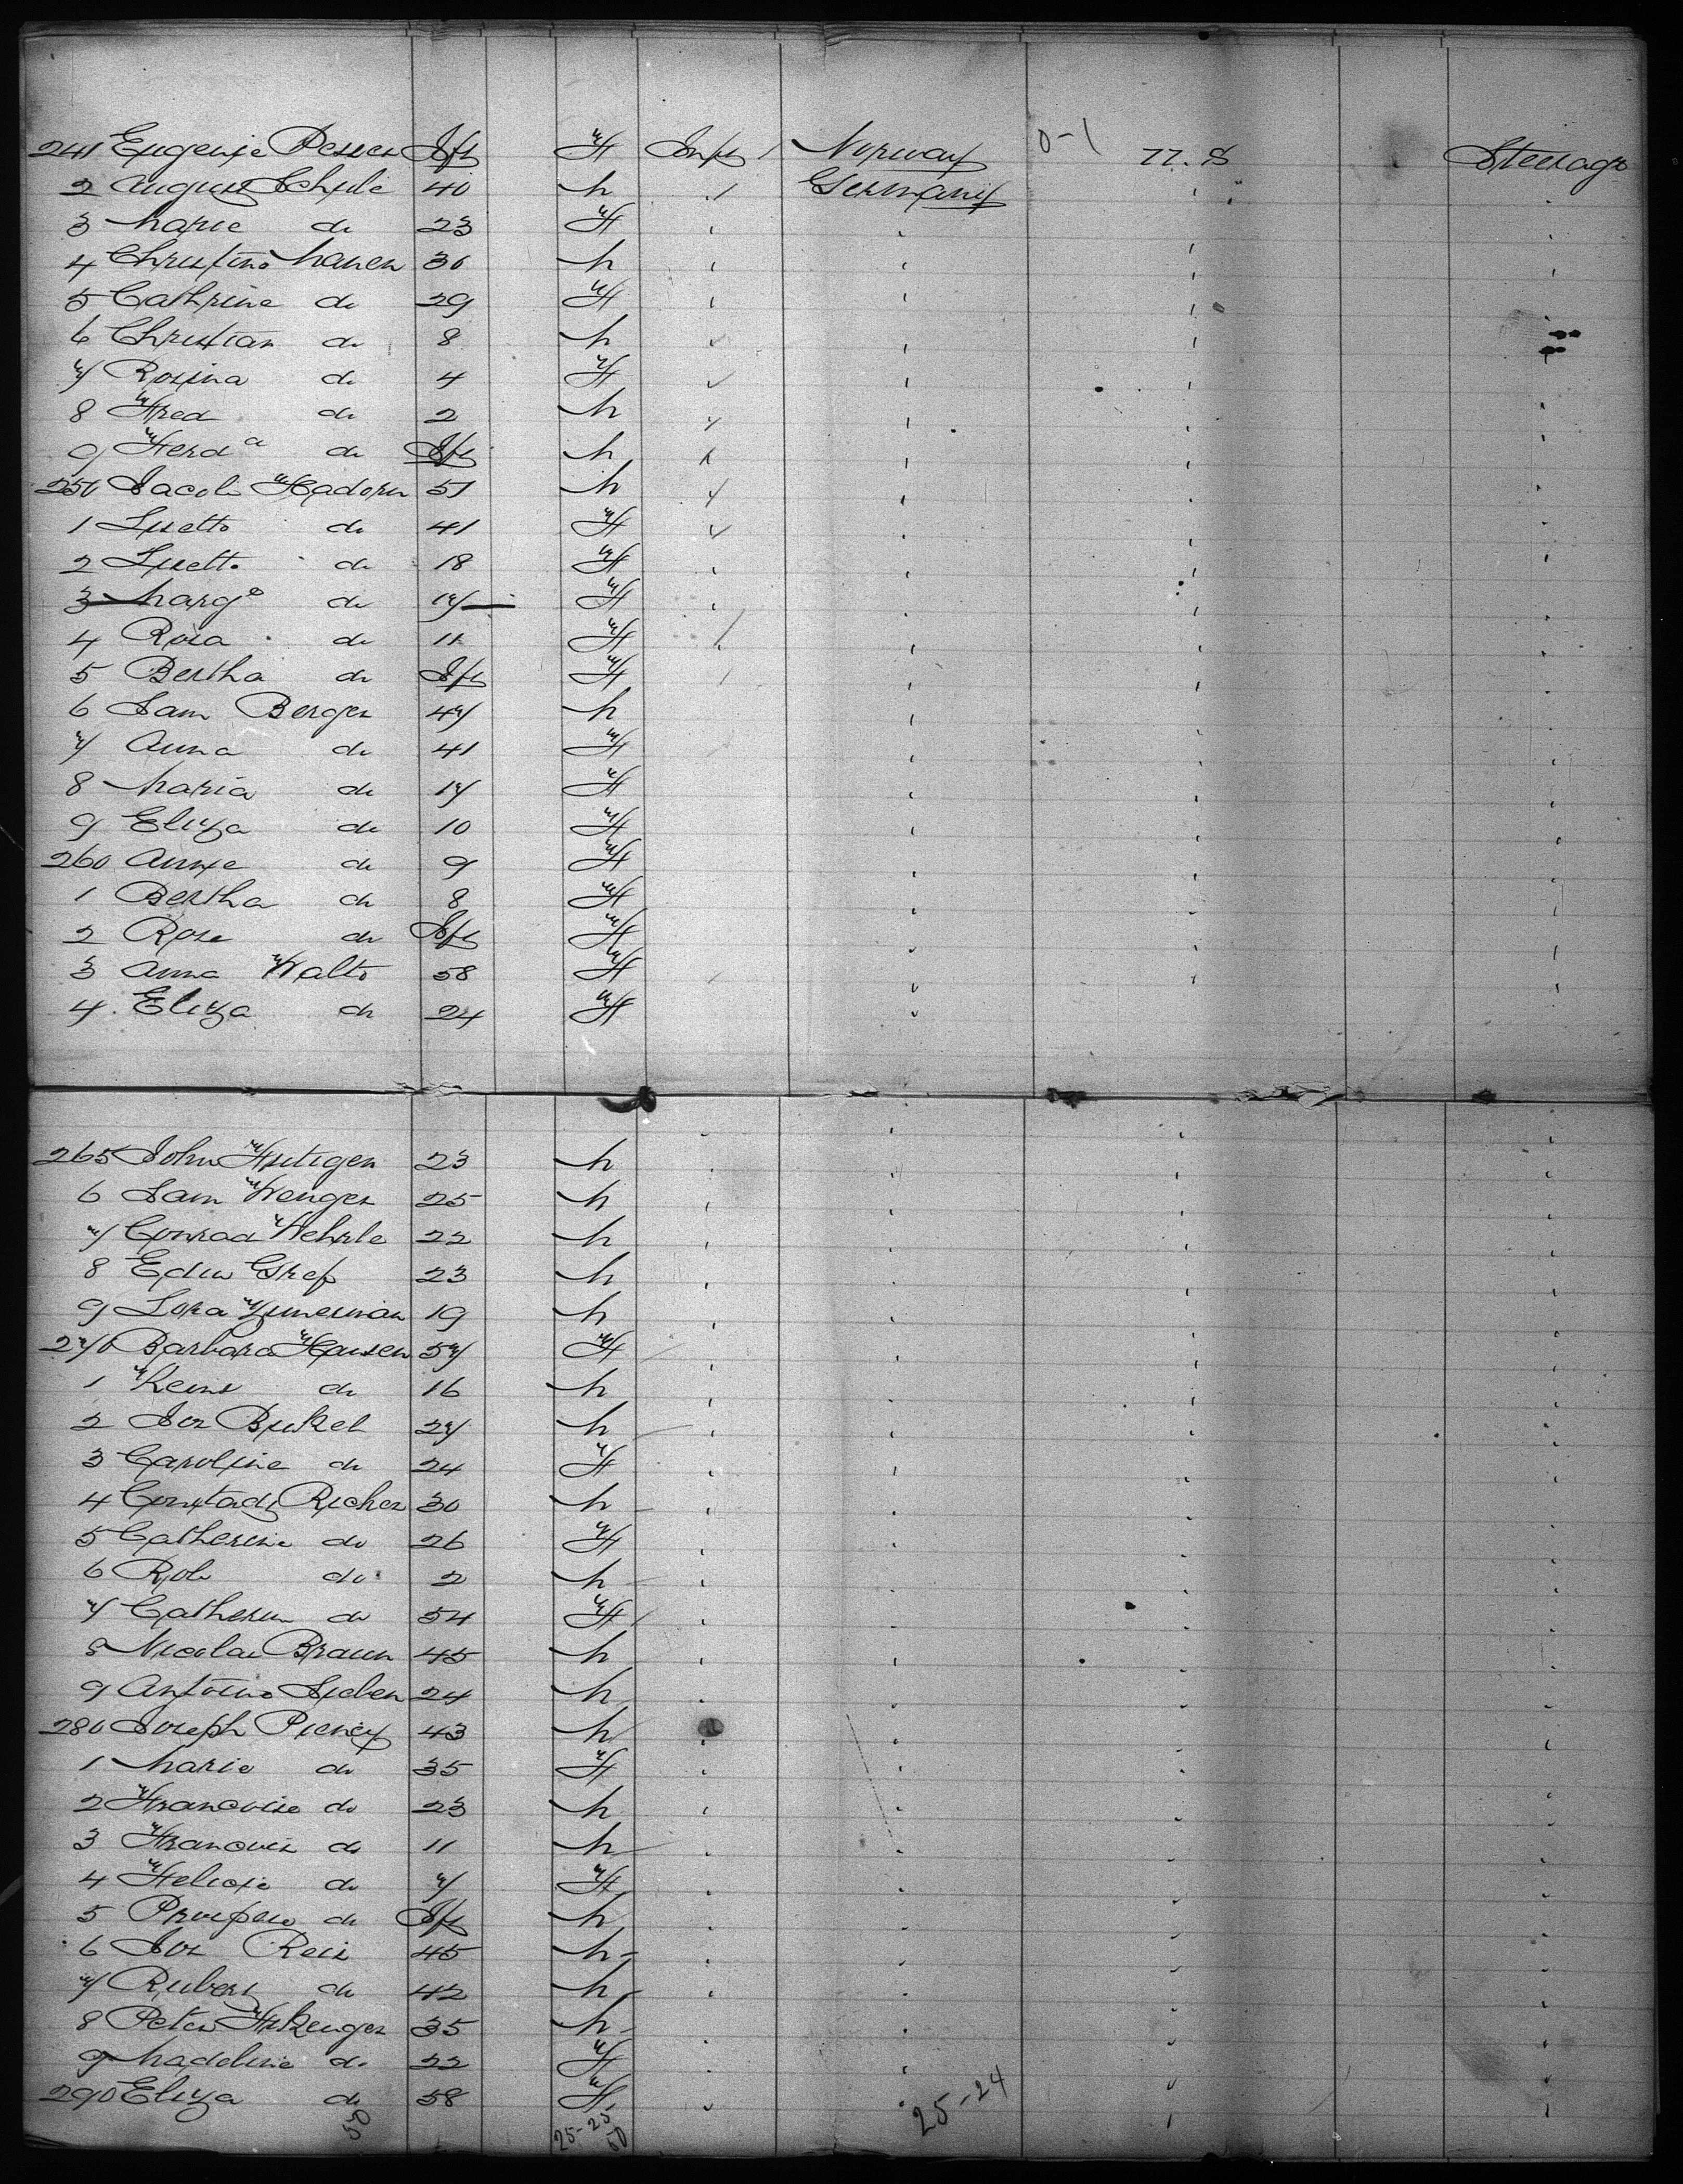 241 Eugenie Peser Inf F Norway 0-1 U.S Steerage
2 August Schule 40 m Germany
3 Marie do 23 F
4 Christino 30 m
5 Cathrine do 29 F
6 Christian do 8 m
7 Rosina do 4 F
8 Fred do 2 m
9 Ferd a do Inf m
250 Jacob Hadorn 51 m
1 Lisetto do 41 F
2 Lisetto do 18 F
3 Marg e do 17 F
4 Rosa do 11 F
5 Bertha do Inf F
6 Sam Berger 47 m
7 Anna do 41 F
8 Maria do 17 F
9 Eliza do 10 F
260 Annie do 9 F
1 Bertha do 8 F
2 Rose do Inf F
3 Anna Walto 58 F
4 Eliza do 24 F
265 John Frutigen 23 m
6 Sam Wenger 25 m
7 Conrad Wehrle 22 m
8 Edw Gref 23 m
9 Lora Zimerman 19 m
270 Barbara Hausen 57 F
1 do 16 m
2 Jos Bukel 27 m
3 Caroline do 24 F
4 Richer 30 m
5 Catherine do 26 F
6 Rob do 2 m
7 Catherin do 54 F
8 Nicolas Braun 45 m
9 Antoino Sieben 24 m
280 Joseph 43 m
1 Marie do 35 F
2 Francoise do 23 m
3 Francois do 11 m
4 do 7 F
5 Prospero do Inf m
6 Jos Reis 45 m
7 Rubert do 42 m
8 Peter 35 m
9 Madeline do 22 F
290 Eliza do 58 F
50 25-25 50 25-24